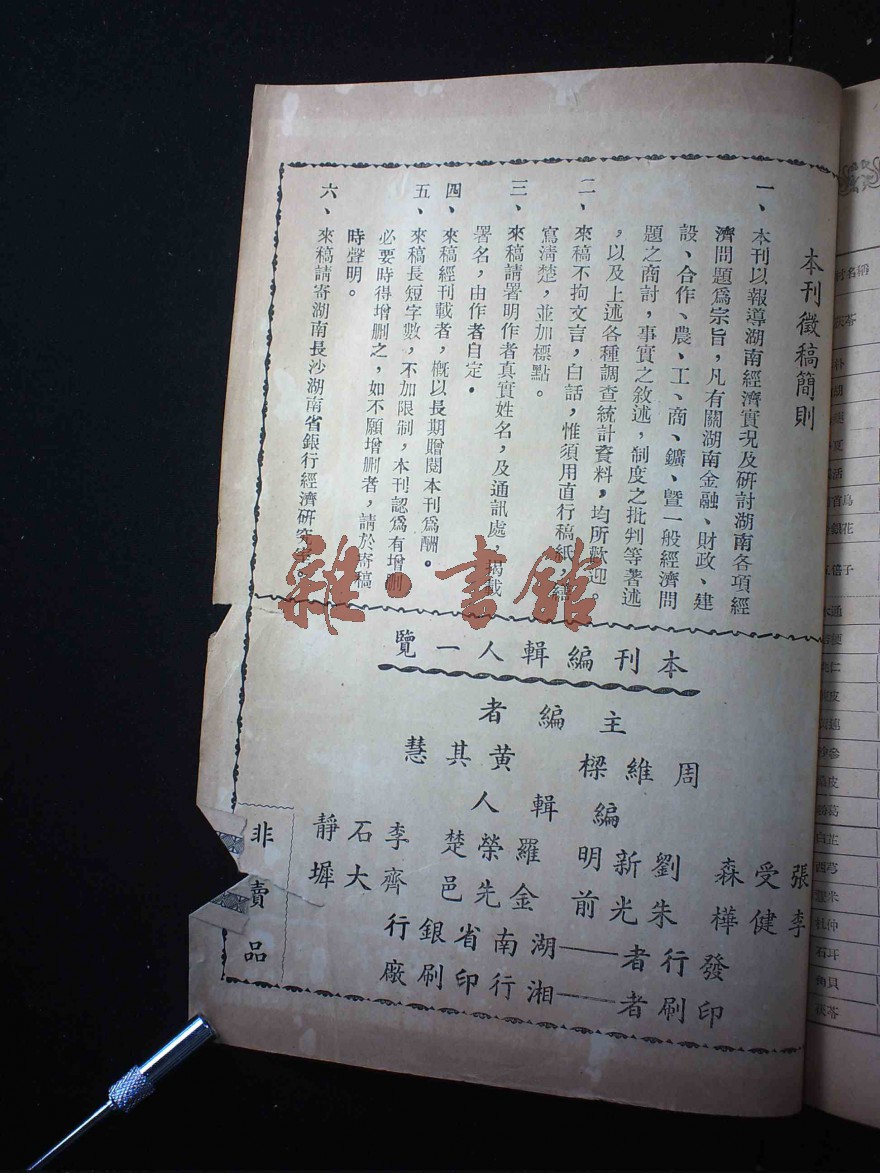 本刊徵稿簡則
一、本刊以報導湖南經濟實況及研討湖南各項經
濟問題爲宗旨，凡有關湖南金融、財政、建
設、合作、農、工、商、鑛、暨一般經濟問
題之商討，事實之敘述，制度之批判等著述
，以及上述各種調查統計資料，均所歡迎。
二、來稿不拘文言，白話，惟須用直行稿紙，繕
寫清楚，並加標點。
三、來稿請署明作者真實姓名，及通訊處，揭載
署名，由作者自定。
四、來稿經刊載者，概以長期贈閱本刊爲酬。
五、來稿長短字數，不加限制，本刊認爲有增刪
必要時得增刪之，如不願增刪者，請於寄稿
時聲明。
六、來稿請寄湖南長沙湖南省銀行經濟研究室。
本刊編輯人一覽
主編者
周維樑 黃其慧
編輯人
張受森 劉新明 羅榮楚 李石靜
李健樺 朱光前 金先邑 齊大墀
發行者——湖南省銀行
印刷者——湘行印刷廠
非賣品
雜·書館